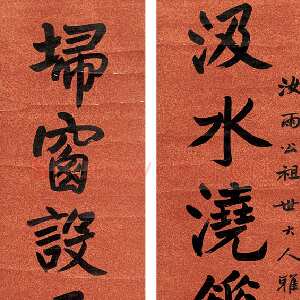 汝雨公祖世大人雅
汲水澆
掃窗設